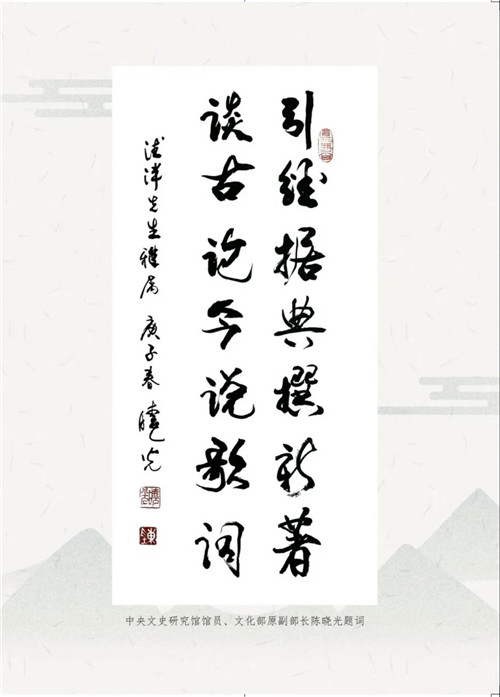 引经据典撰新著
谈古论今说歌词
先生雅属 庚子春 晓光
中央文史研究馆馆员、文化部原副部长陈晓光题词